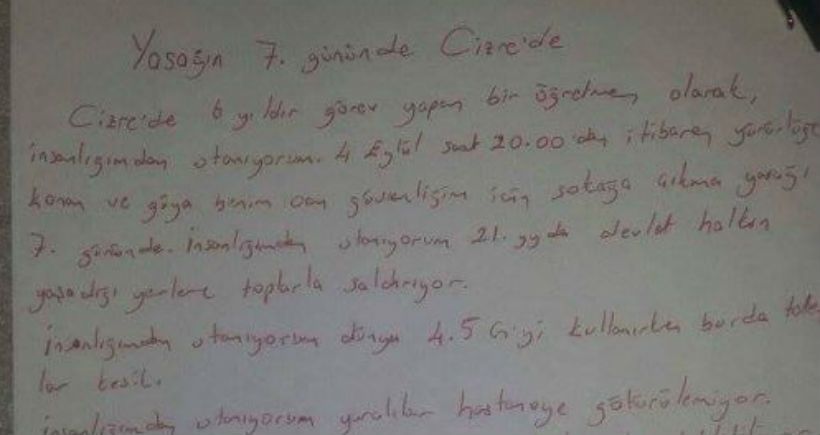 Yasağın 7. gününde Cizre'de
Cizre'de 6 yıldır görev yapan bir öğretmen olarak,
insanlığımdan utanıyorum. 4 Eylül saat 20.00'dan itibaren yürürlüğe
konan ve güya benim can güvenliğim için sokağa çıkma yasağı
7. gününde. İnsanlığımdan utanıyorum 21. yy da devlet halkın
yaşadığı yerlere toplarla saldırıyor.
İnsanlığımdan utanıyorum dünya 4.5 G'yi kullanırken burda
lar kesik.
İnsanlığımdan utanıyorum yaralılar hastaneye götürülemiyor.